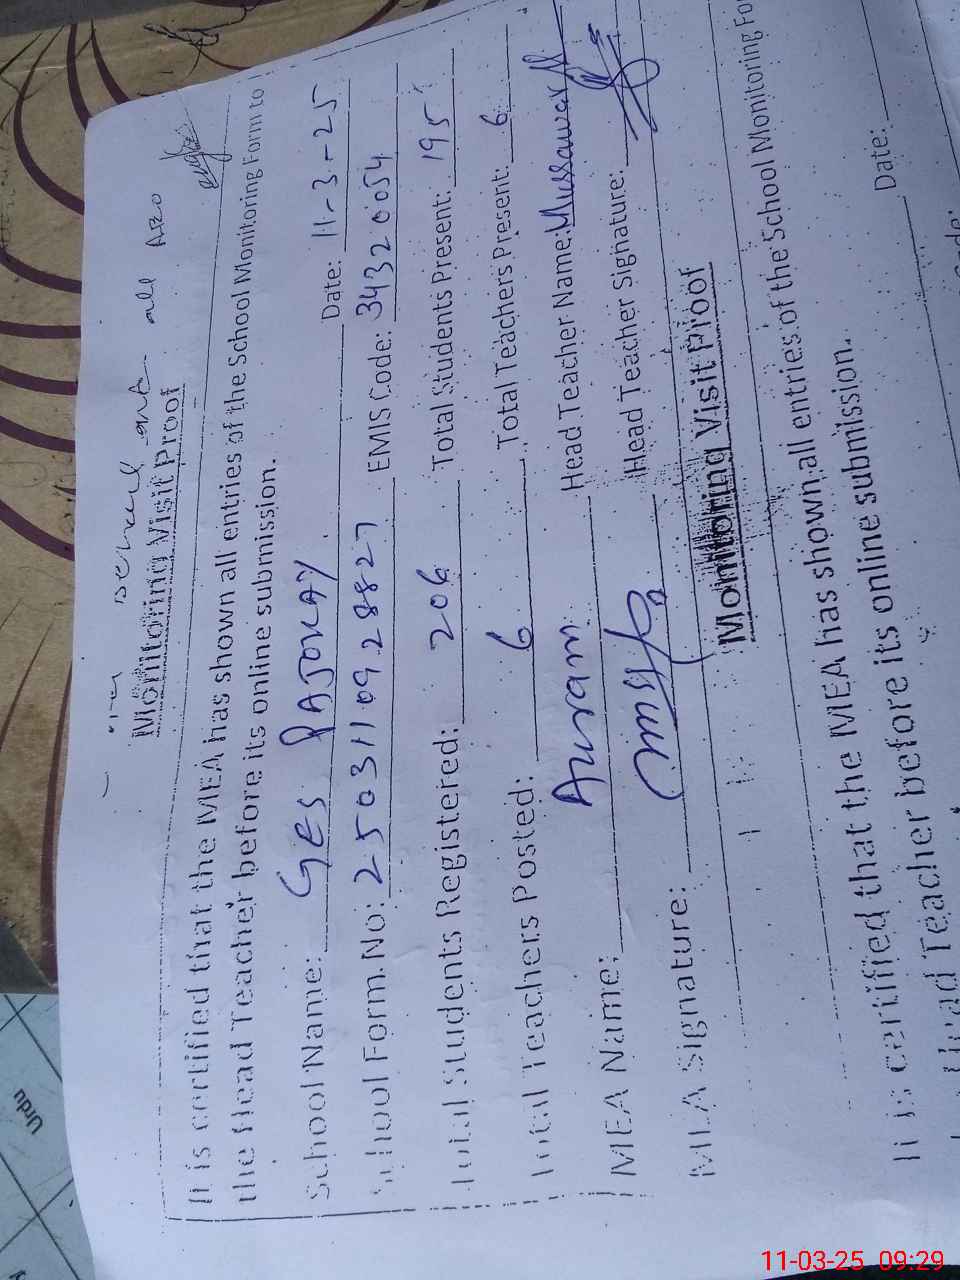 all AEO
Monitoring Visit Proof
It is certified that the MEA has shown all entries of the School Monitoring Form to
the Head Teacher before its online submission.
School Name: GES PAJOKAY Date: 11-3-25
School Form.No: 250311092 8827 EMIS Code: 34320054
Total Students Registered: 206 Total Students Present: 195
Total Teachers Posted: 6 Total Teachers Present: 6
MEA Name: Head Teacher Name:
MEA Signature: Head Teacher Signature:
Monitoring Visit Proof
It is certified that the MEA has shown all entries of the School Monitoring For
Head Teacher before its online submission.
Date:
Urdu
11-03-25 09:29